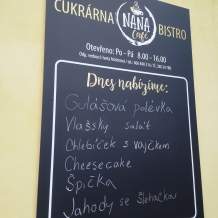 CUKRÁRNA BISTRO
NANA
Cafe
Otevřeno: Po - Pá 8.00 - 16.00
Dnes nabízíme:
Gulášová polévka
Vlašsky salát
Chlebíček s vajíčkem
Cheesecake
Špička
Jahody se šlehačkou